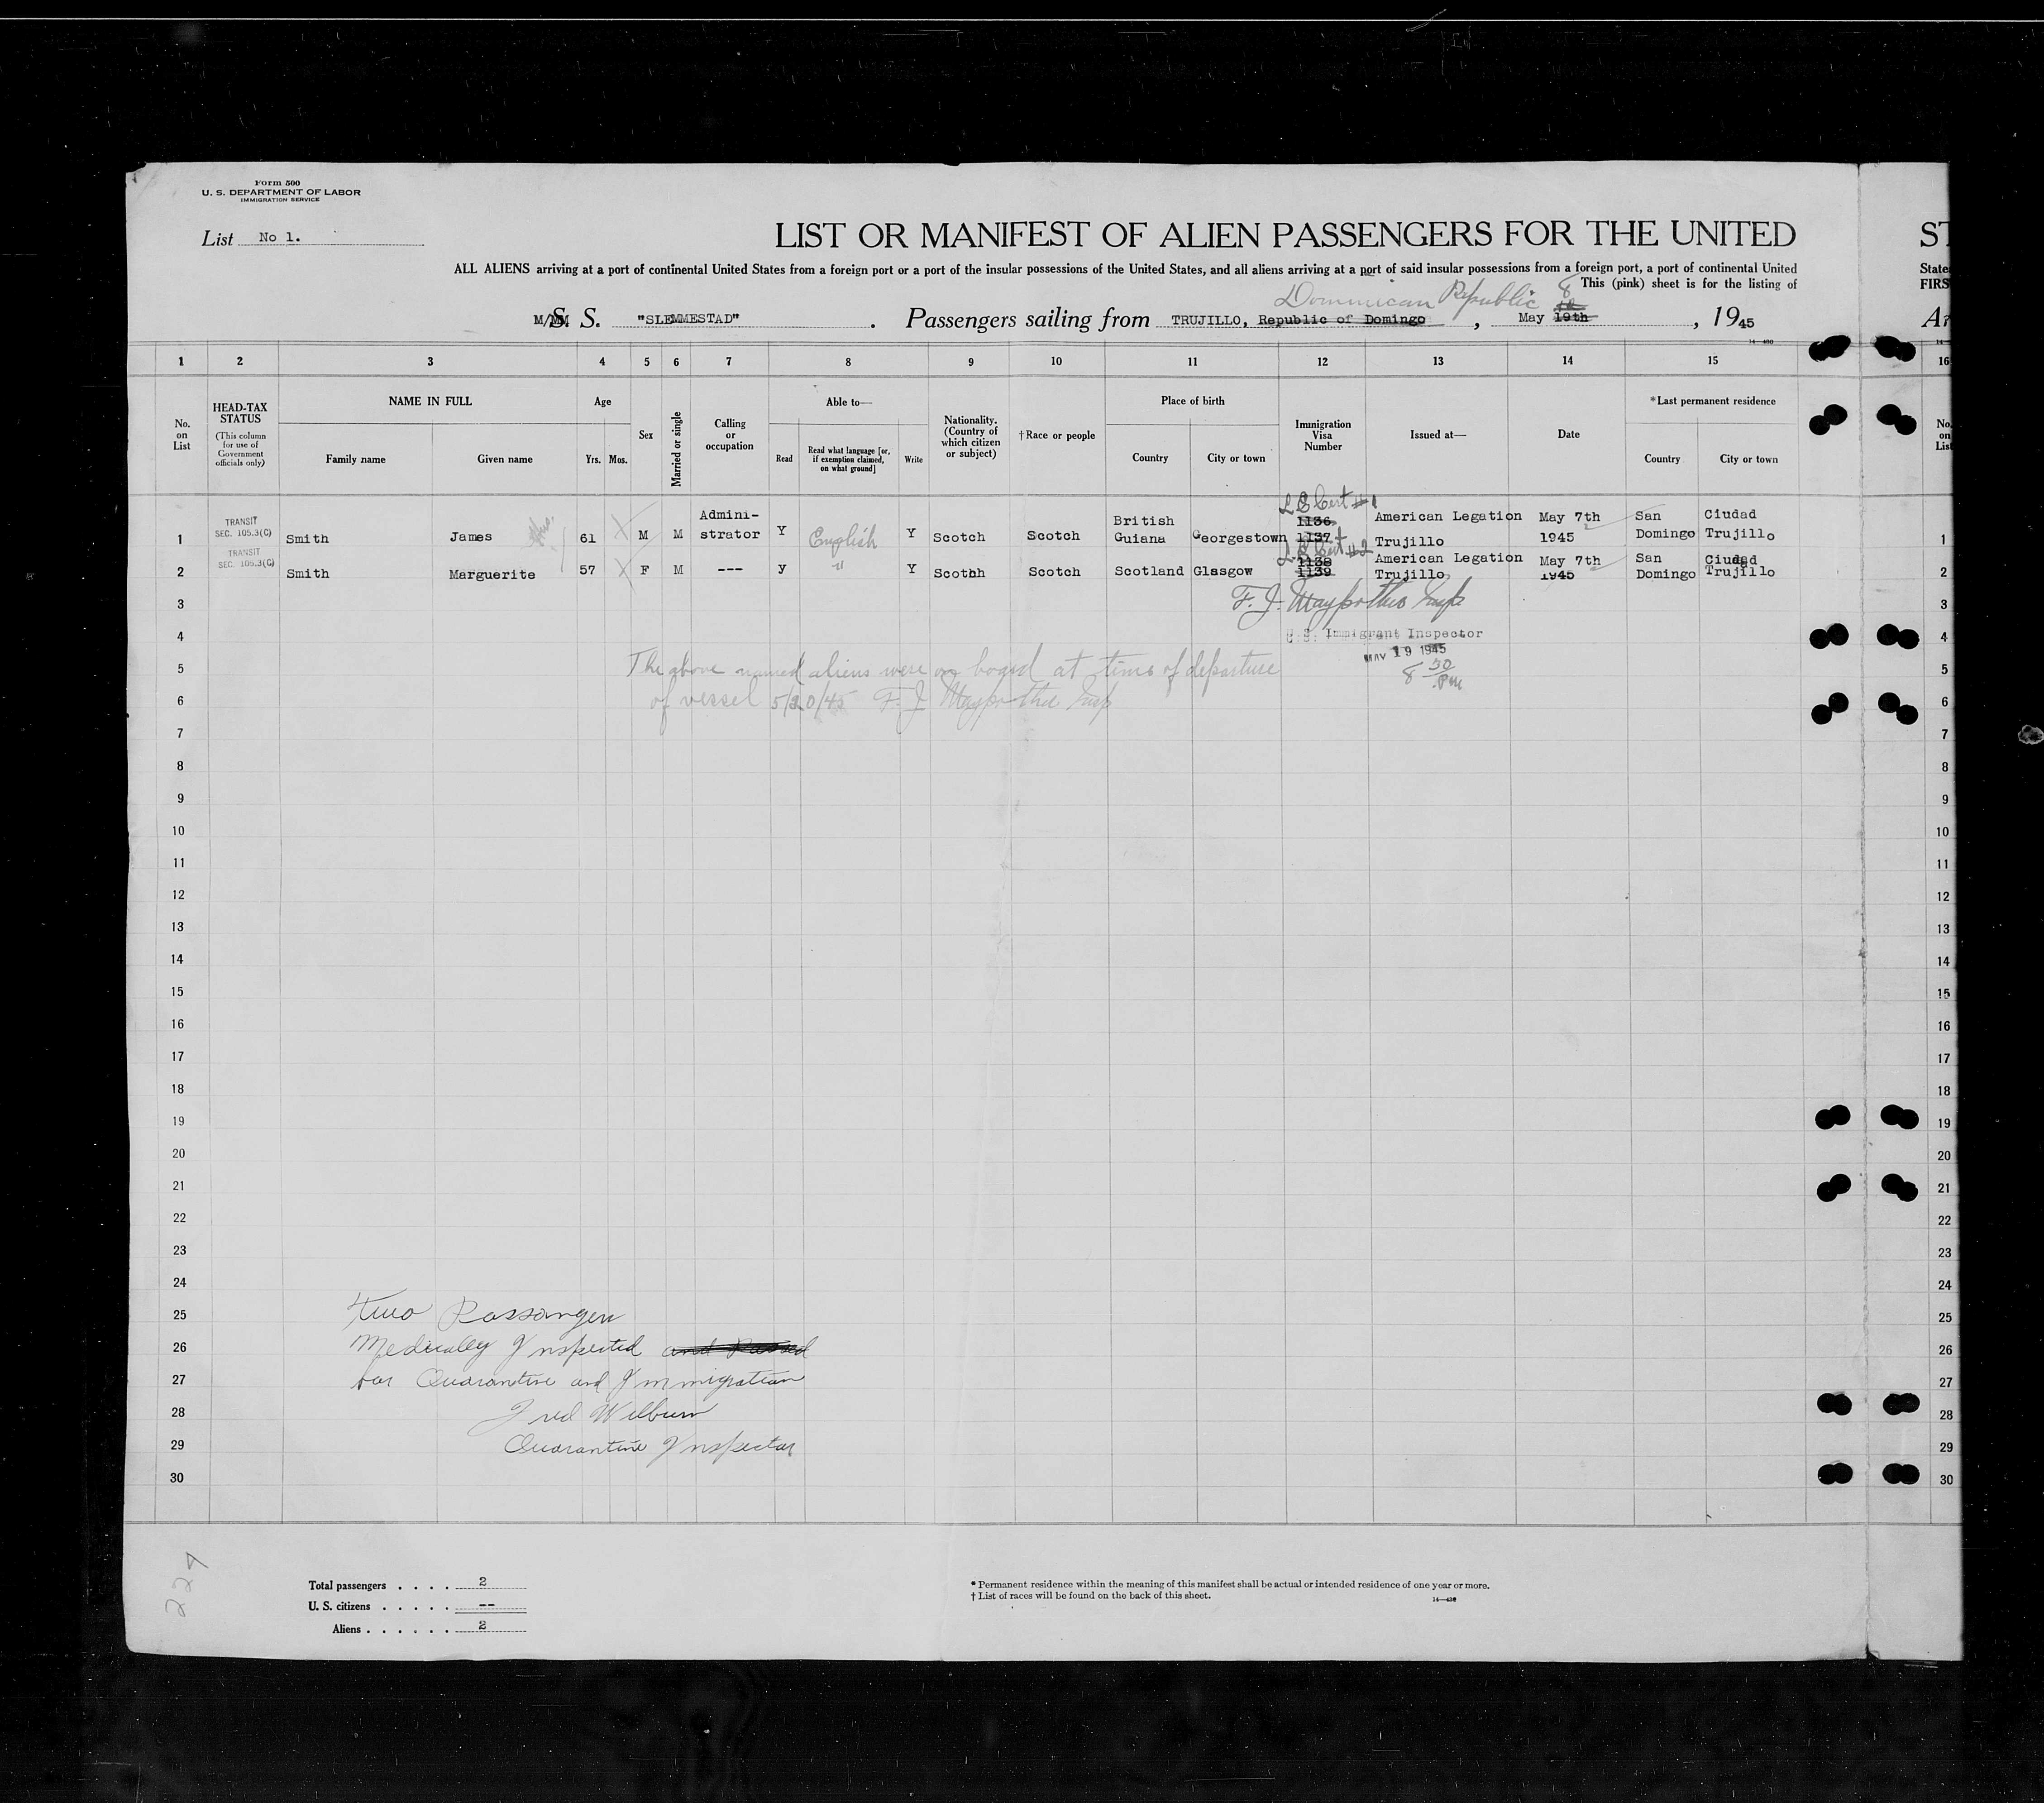 Form 500
U. S. DEPARTMENT OF LABOR
IMMIGRATION SERVICE
List No 1.
LIST OR MANIFEST OF ALIEN PASSENGERS FOR THE UNITED
ST
ALL ALIENS arriving at a port of continental United States from a foreign port or a port of the insular possessions of the United States, and all aliens arriving at a port of said insular possessions from a foreign port, a port of continental United
State
This (pink) sheet is for the listing of
FIRS
Dominican Republic 8
M/ S. S. "SLEMMESTAD" . Passengers sailing from TRUJILLO, Republic of Domingo , May 19th , 1945
14—430
1 2 3 4 5 6 7 8 9 10 11 12 13 14 15 16
No. on List
HEAD-TAX STATUS
(This column for use of Government officials only)
NAME IN FULL
Family name
Given name
Age
Yrs. Mos.
Sex
Married or single
Calling or occupation
Able to—
Read
Read what language [or, if exemption claimed, on what ground]
Write
Nationality. (Country of which citizen or subject)
†Race or people
Place of birth
Country
City or town
Immigration Visa Number
Issued at—
Date
*Last permanent residence
Country
City or town
No. on List
1 TRANSIT SEC. 105.3(C) Smith James 61 M M Admini-strator Y English Y Scotch Scotch British Guiana Georgestown 1136 1137 American Legation Trujillo May 7th 1945 San Domingo Ciudad Trujillo 1
2 TRANSIT SEC. 105.3(C) Smith Marguerite 57 F M --- y " Y Scotch Scotch Scotland Glasgow 1138 1139 American Legation Trujillo May 7th 1945 San Domingo Ciudad Trujillo 2
3 F. J. Insp 3
4 U.S. Immigrant Inspector 4
MAY 19 1945
5 The above named aliens were on board at time of departure 8 30 PM 5
6 of vessel 5/20/45 F. J. Insp 6
7 7
8 8
9 9
10 10
11 11
12 12
13 13
14 14
15 15
16 16
17 17
18 18
19 19
20 20
21 21
22 22
23 23
24 24
25 Two Passangers 25
26 Medically Inspected and Passed 26
27 for Quarantine and Immigration 27
28 Fred Wilburn 28
29 Quarantine Inspector 29
30 30
224
Total passengers . . . . 2
U. S. citizens . . . . . --
Aliens . . . . . . 2
* Permanent residence within the meaning of this manifest shall be actual or intended residence of one year or more.
† List of races will be found on the back of this sheet.
14—430